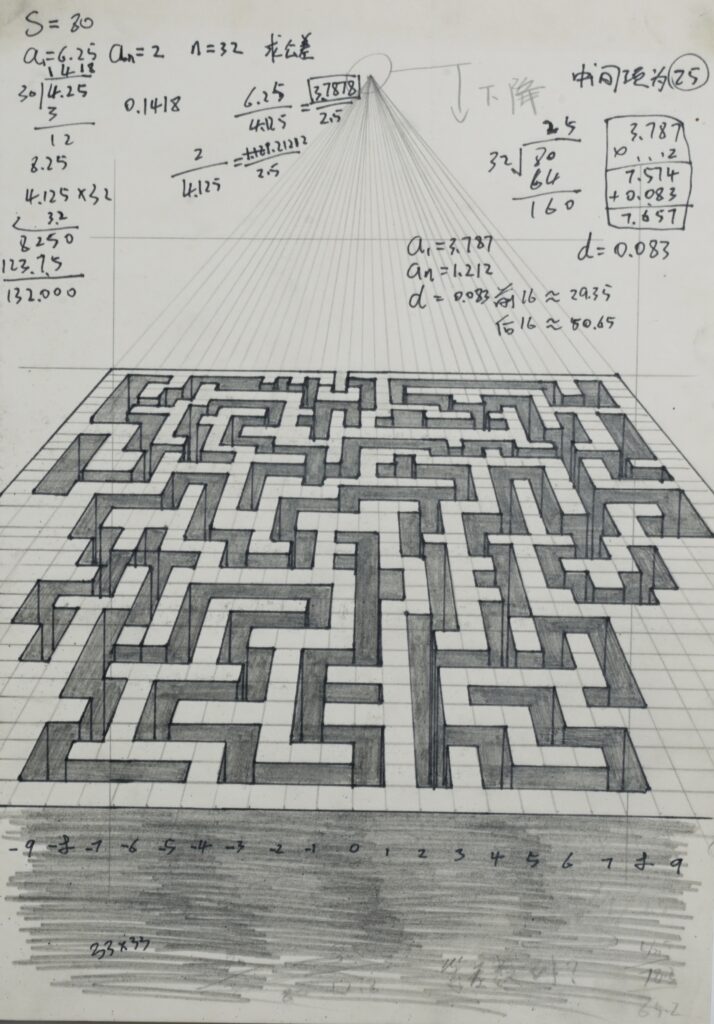 S = 80
a₁=6.25 aₙ=2 n=32 求公差
14.18
30 4.25
3
12
8.25
4.125×32
3.2
8250
123.75
132.000
0.1418
6.25/4.125 = 3.7878/2.5
2/4.125 =
2.5
下降
中间项为 2.5
2.5
32 80
64
160
3.787
7.574
+0.083
7.657
d=0.083
a₁=3.787
aₙ=1.212
d=0.083 前16≈29.35
后16≈50.65
-9 -8 -7 -6 -5 -4 -3 -2 -1 0 1 2 3 4 5 6 7 8 9
33×33